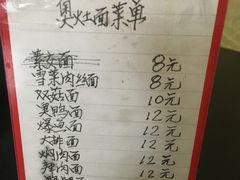 奥灶面菜单
素交面 8元
雪菜肉丝面 8元
双菇面 10元
卤鸭面 12元
爆鱼面 12元
大排面 12元
焖肉面 12元
辣肉面 12元